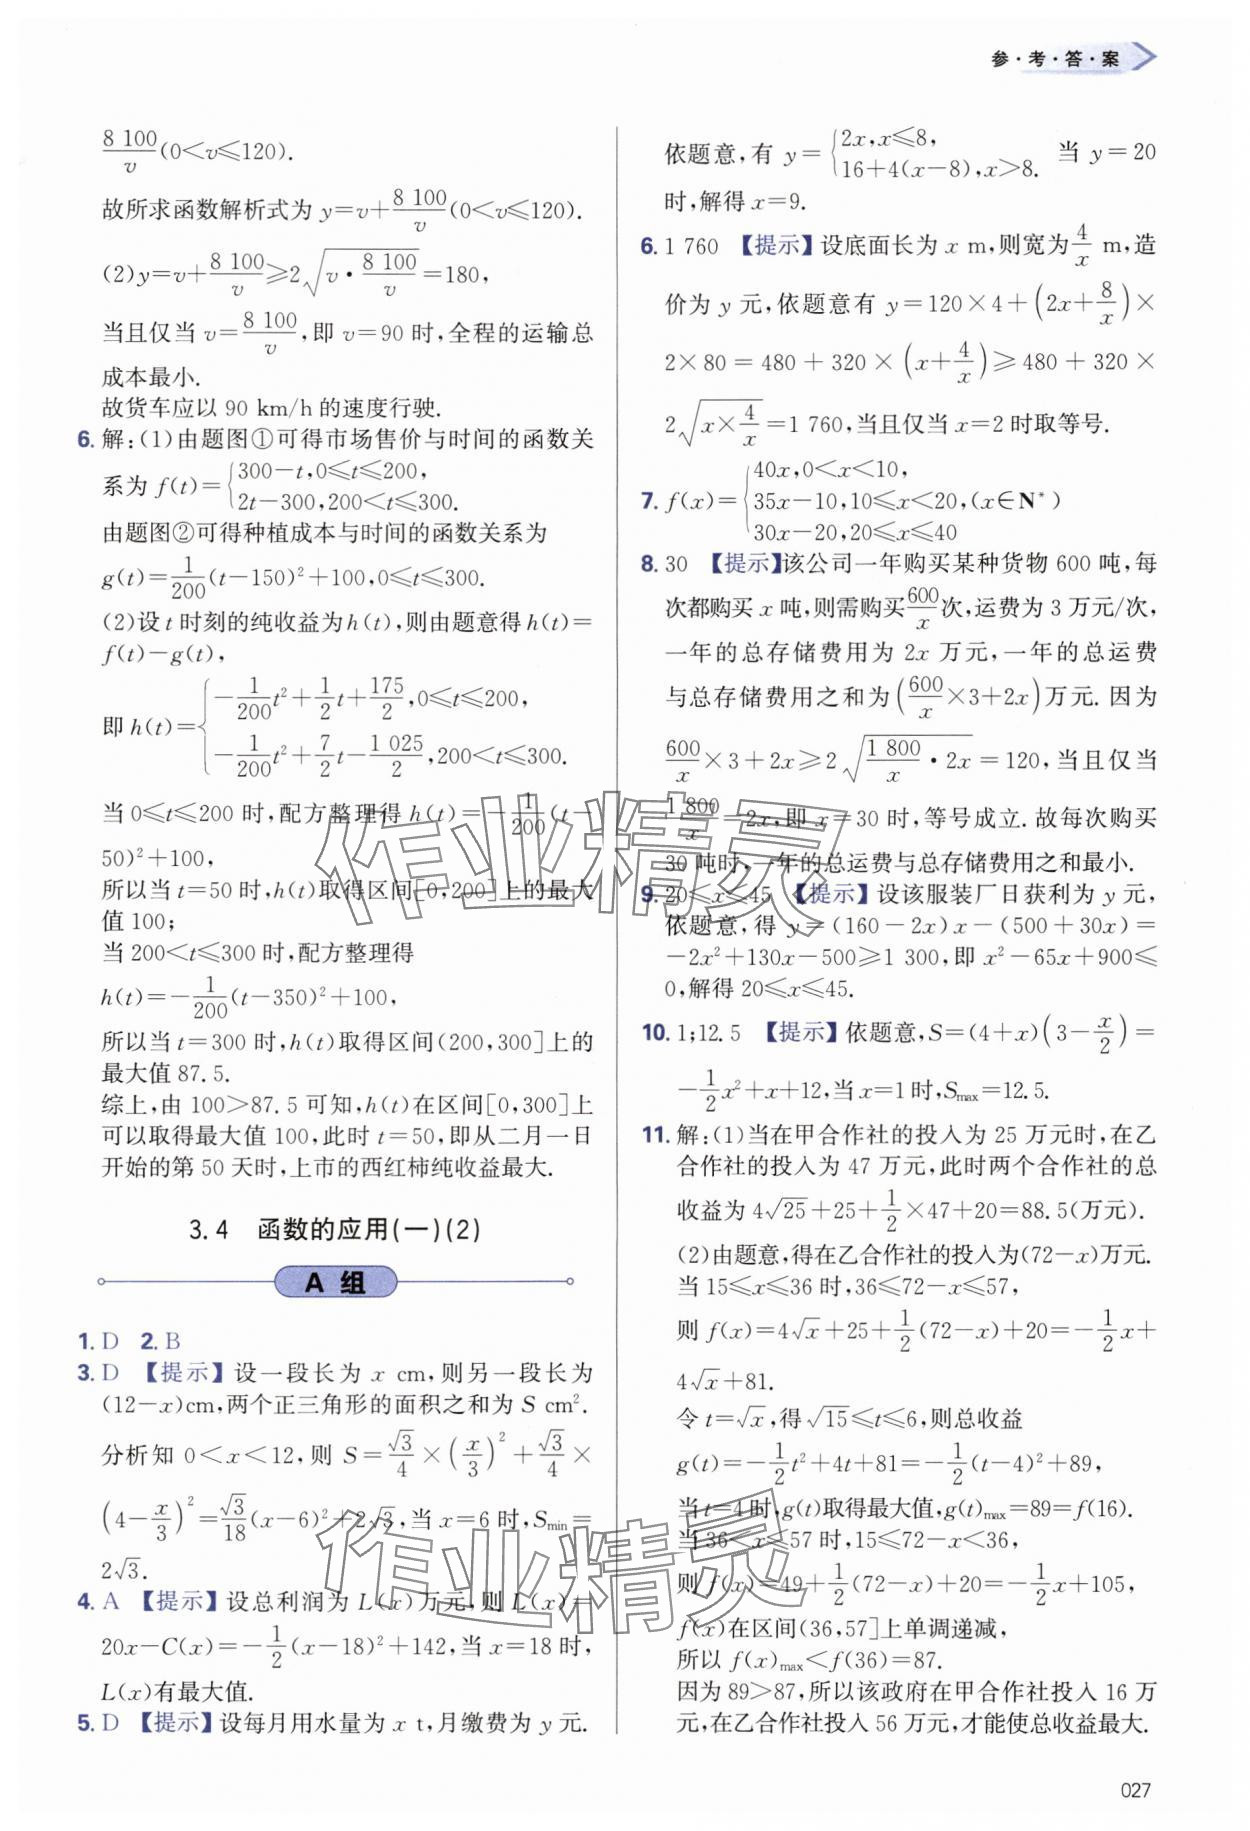 参·考·答·案
8 100/v(0<v≤120).
故所求函数解析式为 y=v+8 100/v(0<v≤120).
(2)y=v+8 100/v≥2√(v·8 100/v)=180,
当且仅当 v=8 100/v,即 v=90 时,全程的运输总
成本最小.
故货车应以 90 km/h 的速度行驶.
6. 解:(1)由题图①可得市场售价与时间的函数关
系为 f(t)={300-t,0≤t≤200,
2t-300,200<t≤300.
由题图②可得种植成本与时间的函数关系为
g(t)=1/200(t-150)²+100,0≤t≤300.
(2)设 t 时刻的纯收益为 h(t),则由题意得 h(t)=
f(t)-g(t),
即 h(t)={-1/200t²+1/2t+175/2,0≤t≤200,
-1/200t²+7/2t-1 025/2,200<t≤300.
当 0≤t≤200 时,配方整理得 h(t)=-1/200(t-
50)²+100,
所以当 t=50 时,h(t)取得区间[0,200]上的最大
值 100;
当 200<t≤300 时,配方整理得
h(t)=-1/200(t-350)²+100,
所以当 t=300 时,h(t)取得区间(200,300]上的
最大值 87.5.
综上,由 100>87.5 可知,h(t)在区间[0,300]上
可以取得最大值 100,此时 t=50,即从二月一日
开始的第 50 天时,上市的西红柿纯收益最大.
3.4 函数的应用(一)(2)
A 组
1. D 2. B
3. D 【提示】设一段长为 x cm,则另一段长为
(12-x)cm,两个正三角形的面积之和为 S cm².
分析知 0<x<12,则 S=√3/4×(x/3)²+√3/4×
(4-x/3)²=√3/18(x-6)²+2√3,当 x=6 时,Smin=
2√3.
4. A 【提示】设总利润为 L(x)万元,则 L(x)=
20x-C(x)=-1/2(x-18)²+142,当 x=18 时,
L(x)有最大值.
5. D 【提示】设每月用水量为 x t,月缴费为 y 元.
依题意,有 y={2x,x≤8,
16+4(x-8),x>8. 当 y=20
时,解得 x=9.
6. 1 760 【提示】设底面长为 x m,则宽为4/x m,造
价为 y 元,依题意有 y=120×4+(2x+8/x)×
2×80=480+320×(x+4/x)≥480+320×
2√(x×4/x)=1 760,当且仅当 x=2 时取等号.
7. f(x)={40x,0<x<10,
35x-10,10≤x<20,(x∈N*)
30x-20,20≤x≤40
8. 30 【提示】该公司一年购买某种货物 600 吨,每
次都购买 x 吨,则需购买600/x次,运费为 3 万元/次,
一年的总存储费用为 2x 万元,一年的总运费
与总存储费用之和为(600/x×3+2x)万元.因为
600/x×3+2x≥2√(1 800/x·2x)=120,当且仅当
1 800/x=2x,即 x=30 时,等号成立.故每次购买
30 吨时,一年的总运费与总存储费用之和最小.
9. 20≤x≤45 【提示】设该服装厂日获利为 y 元,
依题意,得 y=(160-2x)x-(500+30x)=
-2x²+130x-500≥1 300,即 x²-65x+900≤
0,解得 20≤x≤45.
10. 1;12.5 【提示】依题意,S=(4+x)(3-x/2)=
-1/2x²+x+12,当 x=1 时,Smax=12.5.
11. 解:(1)当在甲合作社的投入为 25 万元时,在乙
合作社的投入为 47 万元,此时两个合作社的总
收益为 4√25+25+1/2×47+20=88.5(万元).
(2)由题意,得在乙合作社的投入为(72-x)万元.
当 15≤x≤36 时,36≤72-x≤57,
则 f(x)=4√x+25+1/2(72-x)+20=-1/2x+
4√x+81.
令 t=√x,得√15≤t≤6,则总收益
g(t)=-1/2t²+4t+81=-1/2(t-4)²+89,
当 t=4 时,g(t)取得最大值,g(t)max=89=f(16).
当 36<x≤57 时,15≤72-x<36,
则 f(x)=49+1/2(72-x)+20=-1/2x+105,
f(x)在区间(36,57]上单调递减,
所以 f(x)max<f(36)=87.
因为 89>87,所以该政府在甲合作社投入 16 万
元,在乙合作社投入 56 万元,才能使总收益最大.
027
作业精灵
作业精灵